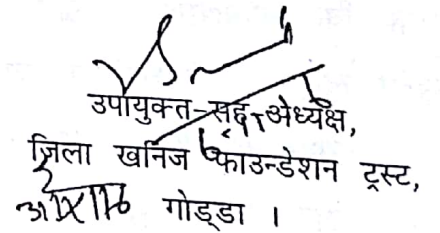 उपायुक्त-सह-अध्यक्ष,
जिला खनिज फाउन्डेशन ट्रस्ट,
गोड्डा ।